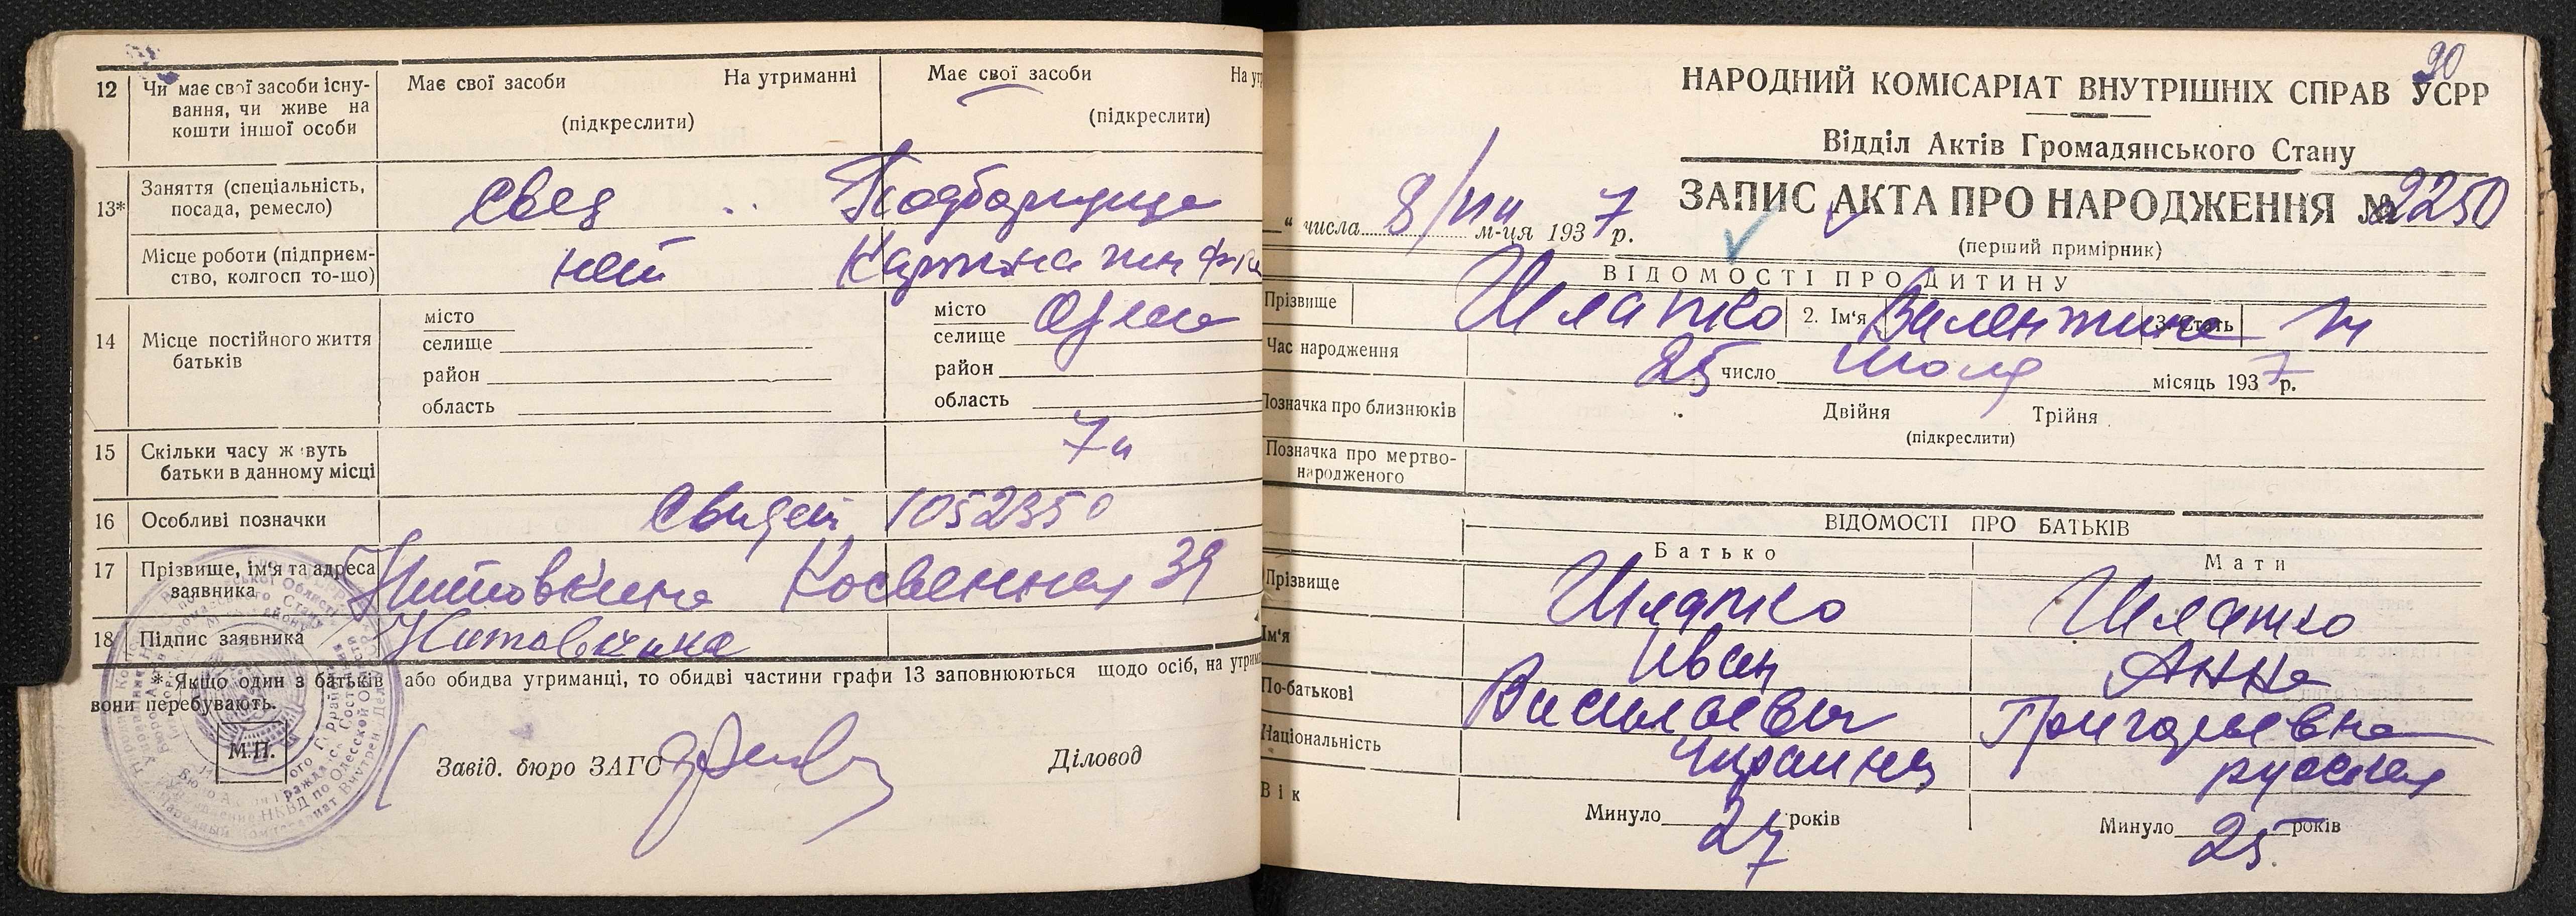 12 Чи має свої засоби існування, чи живе на кошти іншої особи
Має свої засоби На утриманні
(підкреслити)
Має свої засоби На ут
(підкреслити)
13* Заняття (спеціальність, посада, ремесло)
свед Подборщица
Місце роботи (підприємство, колгосп то-що)
нет Картонажн ф-ка
14 Місце постійного життя батьків
місто
селище
район
область
місто Одесса
селище
район
область
15 Скільки часу живуть батьки в данному місці
16 Особливі позначки
Свидет 1052350
17 Прізвище, ім'я та адреса заявника
Косвенная 39
18 Підпис заявника
* Якщо один з батьків або обидва утриманці, то обидві частини графи 13 заповнюються щодо осіб, на утрим
вони перебувають.
М.П.
Завід. бюро ЗАГС
Діловод
90
НАРОДНИЙ КОМІСАРІАТ ВНУТРІШНІХ СПРАВ УСРР
Відділ Актів Громадянського Стану
ЗАПИС АКТА ПРО НАРОДЖЕННЯ № 2250
" числа 8/VIII м-ця 1937 р.
(перший примірник)
ВІДОМОСТІ ПРО ДИТИНУ
Прізвище Шлапко 2. Ім'я Валентина 3. Стать
Час народження 25 число июля місяць 1937 р.
Позначка про близнюків Двійня Трійня
(підкреслити)
Позначка про мертвонародженого
ВІДОМОСТІ ПРО БАТЬКІВ
Батько Мати
Прізвище Шлапко Шлапко
Ім'я Иван Анна
По-батькові Васильевич Григорьевна
Національність украинец русская
Вік Минуло 27 років Минуло 25 років